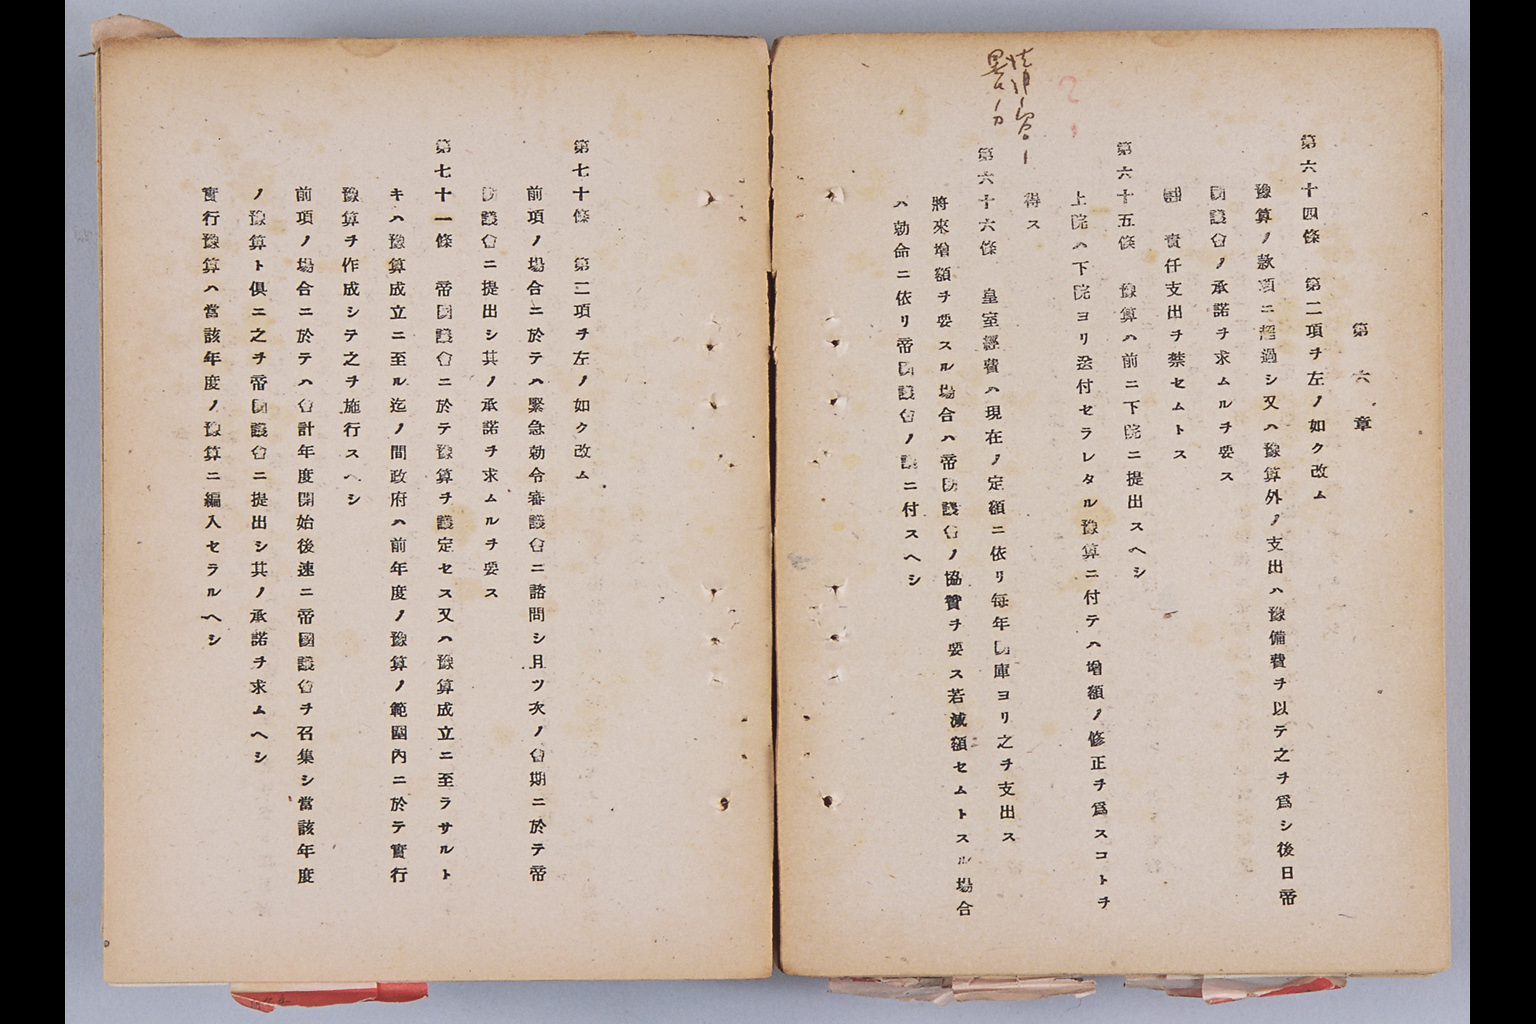 第六章
第六十四條　第二項チ左ノ如ク改ム
豫算ノ款項ニ超過シ又ハ豫算外ノ支出ハ豫備費チ以テ之チ爲シ後日帝
國議會ノ承諾チ求ムルチ要ス
責任支出チ禁セムトス
第六十五條　豫算ハ前ニ下院ニ提出スヘシ
上院ハ下院ヨリ送付セラレタル豫算ニ付テハ增額ノ修正チ爲スコトチ
得ス
第六十六條　皇室經費ハ現在ノ定額ニ依リ每年國庫ヨリ之チ支出ス
將來增額チ要スル場合ハ帝國議會ノ協贊チ要ス若減額セムトスル場合
ハ勅命ニ依リ帝國議會ノ議ニ付スヘシ
第七十條　第二項チ左ノ如ク改ム
前項ノ場合ニ於テハ緊急勅令審議會ニ諮問シ且ツ次ノ會期ニ於テ帝
國議會ニ提出シ其ノ承諾チ求ムルチ要ス
第七十一條　帝國議會ニ於テ豫算チ議定セス又ハ豫算成立ニ至ラサルト
キハ豫算成立ニ至ル迄ノ間政府ハ前年度ノ豫算ノ範圍內ニ於テ實行
豫算チ作成シテ之チ施行スヘシ
前項ノ場合ニ於テハ會計年度開始後速ニ帝國議會チ召集シ當該年度
ノ豫算ト俱ニ之チ帝國議會ニ提出シ其ノ承諾チ求ムヘシ
實行豫算ハ當該年度ノ豫算ニ編入セラルヘシ